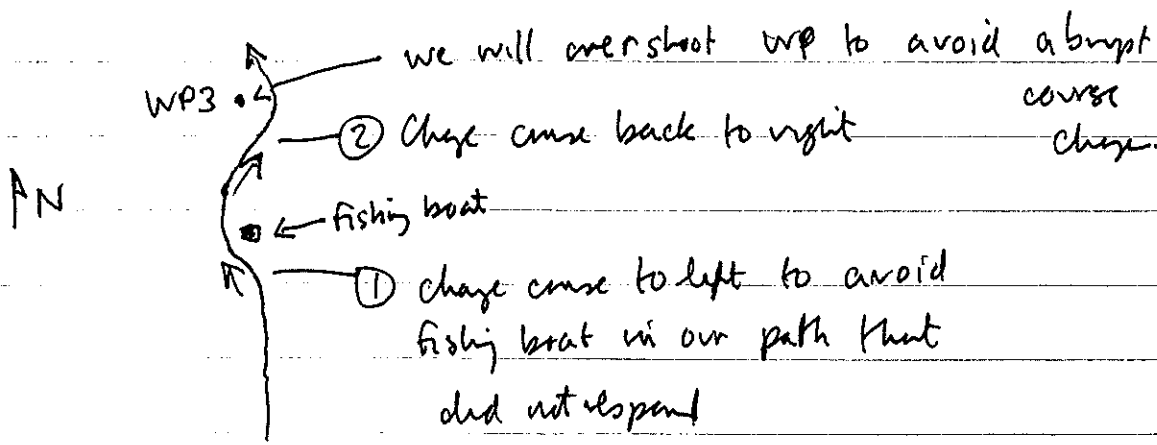 we will overshoot WP to avoid abrupt
course
change.
WP3
② Change course back to right
N
fishing boat
① change course to left to avoid
fishing boat in our path that
did not respond